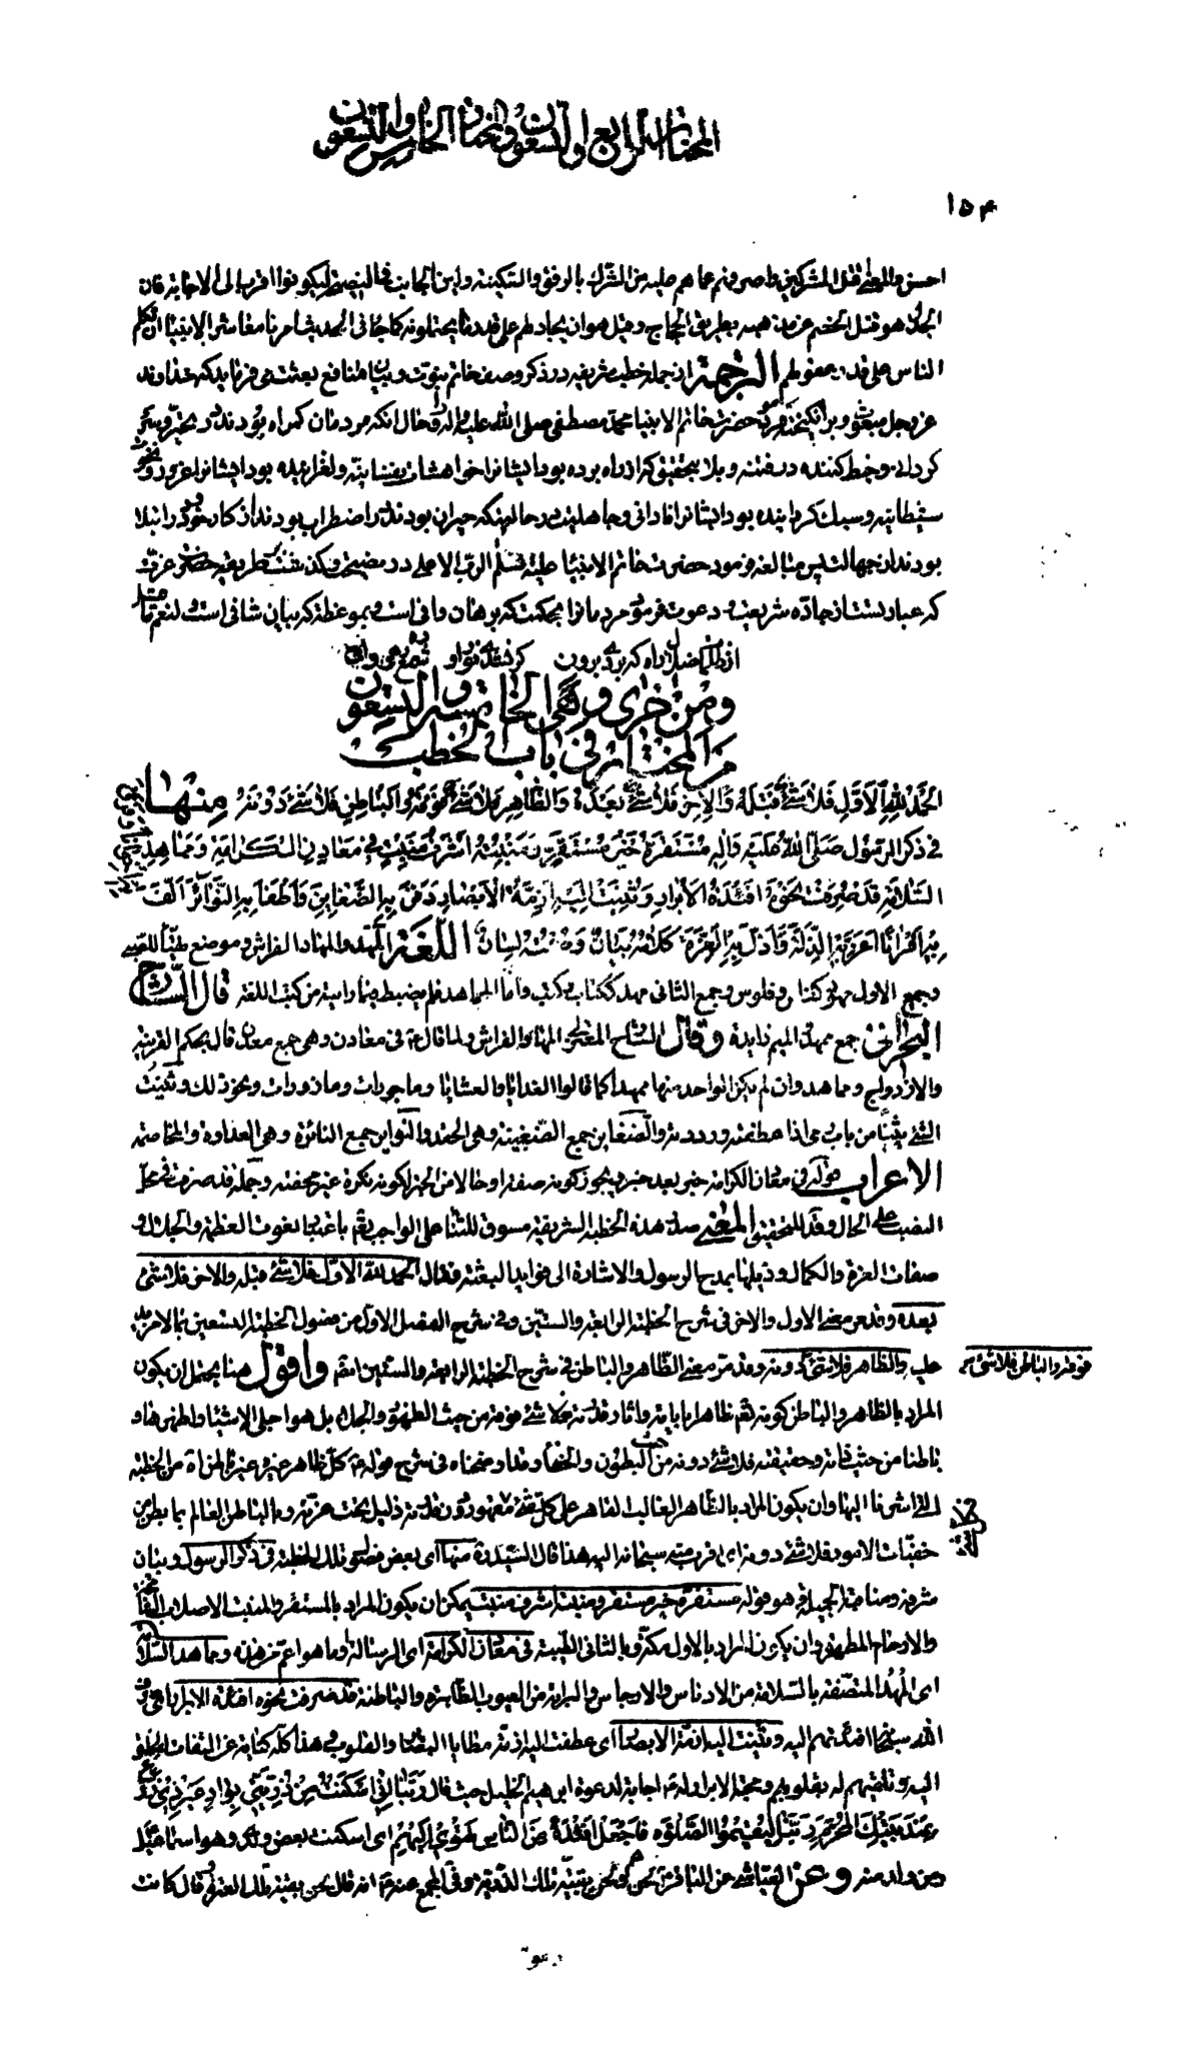 المختار الرابع والتسعون والمختار الخامس والتسعون
١٥٤
احسن والمعنى قتل المشركين واصرفهم عما هم عليه من الشرك بالرفق والسكينة ولين الجانب فى النصيحة ليكونوا اقرب إلى الاجابة فان
الجدل هو فتل الخصم عن مذهبه بطريق الحجاج وقيل هو ان يجادلهم على قدر ما يحتملونه كما جاء فى الحديث امرنا معاشر الانبياء ان نكلم
الناس على قدر عقولهم الترجمة از جمله خطب شريفه در ذكر وصف خاتم نبوت وبيان منافع بعثت مى فرمايد كه خداوند
عز وجل مبعوث وبرانگيخته فرمود حضرت خاتم الانبيا محمد مصطفى صلى الله عليه واله را در حال انكه مردمان گمراه بودند در تحير وسر
كردانى وخبط كننده در فتنه وبلا بتحقيق كه از راه برده بود ايشانرا خواهشات نفسانيه ولغزانيده بود ايشانرا غرور ونخوت
شيطانيه وسبك گردانيده بود ايشانرا نادانى وجاهليت در حالتيكه حيران بودند در اضطراب بودند از كار خود در ابتلا
بودند از جهالت پس مبالغه فرمود حضرت خاتم الانبياء عليه سلم الرب الاعلى در نصيحت وگذشت بر طريقه حضرت عزت
كه عبارتست از جاده شريعت ودعوت فرمود مردمانرا بحكمت كه برهان وافى است وبموعظه كه بيان شافى است ولنعم ما قيل
از ظلمات ضلال راه كه بردى برون گر نشدى نور او شمع رهى
ومن اخرى وهى الخامسة والتسعون
من المختار فى باب الخطب
الحمد لله الاول فلا شىء قبله والاخر فلا شىء بعده والظاهر فلا شىء فوقه والباطن فلا شىء دونه منها
فى ذكر الرسول صلى الله عليه واله مستقره خير مستقر ومنبته اشرف منبت فى معادن الكرامة ومماهد
السلامة قد صرفت نحوه افئدة الابرار وثنيت اليه ازمة الابصار دفن به الضغاين واطفأ به النوائر الف
به اخوانا اعز به الذلة واذل به العزة كلامه بيان وصمته لسان اللغة المهد والمهاد الفراش وموضع يهيأ للصبى
وجمع الاول مهود كفلس وفلوس وجمع الثانى مهد ككتاب وكتب واما المماهد فلم يضبط فيما رأيته من كتب اللغة قال الشارح
البحرانى جمع ممهد والميم زايدة وقال الشارح المعتزلى المهاد الفراش ولما قال ع فى معادن وهى جمع معدن قال بحكم القرينة
والازدواج ومماهد وان لم يكن الواحد منها ممهدا كما قالوا الغدايا والعشايا ومأجورات ومأزورات ونحو ذلك وثنيت
الشىء ثنيا من باب رمى اذا عطفته ورددته والضغاين جمع الضغينة وهى الحقد والنواير جمع النائرة وهى العداوة والمخاصمة
الاعراب قوله فى معادن الكرامة خبر بعد خبر ويجوز كونه صفة او حالا من الخبر لكونه نكرة غير محضة وجملة قد صرفت فى محل
النصب على الحال وقد للتحقيق المعنى صدر هذه الخطبة الشريفة مسوق للثناء على الواجب تعم باعتبار نعوت العظمة والجلال و
صفات العزة والكمال وذيلها بمدح الرسول والاشارة الى فوايد البعثة فقال الحمد لله الاول فلا شىء قبله والاخر فلا شىء
بعده وقد مر معنى الاول والاخر فى شرح الخطبة الرابعة والستين وفى شرح الفصل الاول من فصول الخطبة التسعين بما لا مزيد
عليه والظاهر فلا شىء دونه وقد مر معنى الظاهر والباطن فى شرح الخطبة الرابعة والستين ايضا واقول هنا يحتمل ان يكون
فوقه والباطن فلا شىء
المراد بالظاهر والباطن كونه تعم ظاهرا باياته واثار قدرته فلا شىء فوقه من حيث الظهور والجلاء بل هو اجلى الاشياء واظهرها و
باطنا من حيث ذاته وحقيقته فلا شىء دونه من حيث البطون والخفاء وقد اوضحناه فى شرح قوله ع كل ظاهر غيره غير باطن من الخطبة
التى اشرنا اليها وان يكون المراد بالظاهر الغالب القاهر على كل شىء مقهور دون قدرته ذليل تحت عزته وبالباطن العالم بما بطن من
خفيات الامور فلا شىء دونه اى اقرب منه سبحانه اليه هذا قال السيد ره منها اى بعض فصول تلك الخطبة فى ذكر الرسول وبيان
شرفه ومناقبه الجميلة وهو قوله مستقره خير مستقر ومنبته اشرف منبت يمكن ان يكون المراد بالمستقر والمنبت الاصلاب
والارحام المطهرة وان يكون المراد بالاول مكة وبالثانى الطيبة فى معادن الكرامة اى الرسالة وما هو اعم من هذه ومماهد السلامة
اى المهد المتصفة بالسلامة من الادناس والارجاس والبرائة من العيوب الظاهرة والباطنة قد صرفت نحوه افئدة الابرار اى صرف
الله سبحانه افئدتهم اليه وثنيت اليه ازمة الابصار اى عطفت اليه ازمة مطايا البصاير والقلوب هذا كله كناية عن التفات الخلق
اليه وتلقيهم له بقلوبهم ومحبة الابرار له ع اجابة لدعوة ابراهيم الخليل حيث قال ربنا انى اسكنت من ذريتى بواد غير ذى زرع
عند بيتك المحرم ربنا ليقيموا الصلوة فاجعل افئدة من الناس تهوى اليهم اى اسكنت بعض ولدى وهو اسماعيل
ومن ولد منه وعن العياشى عن الباقر ع نحن هم ونحن بقية تلك الذرية وفى المجمع عنه ع انه قال نحن بقية تلك العترة وقال كانت